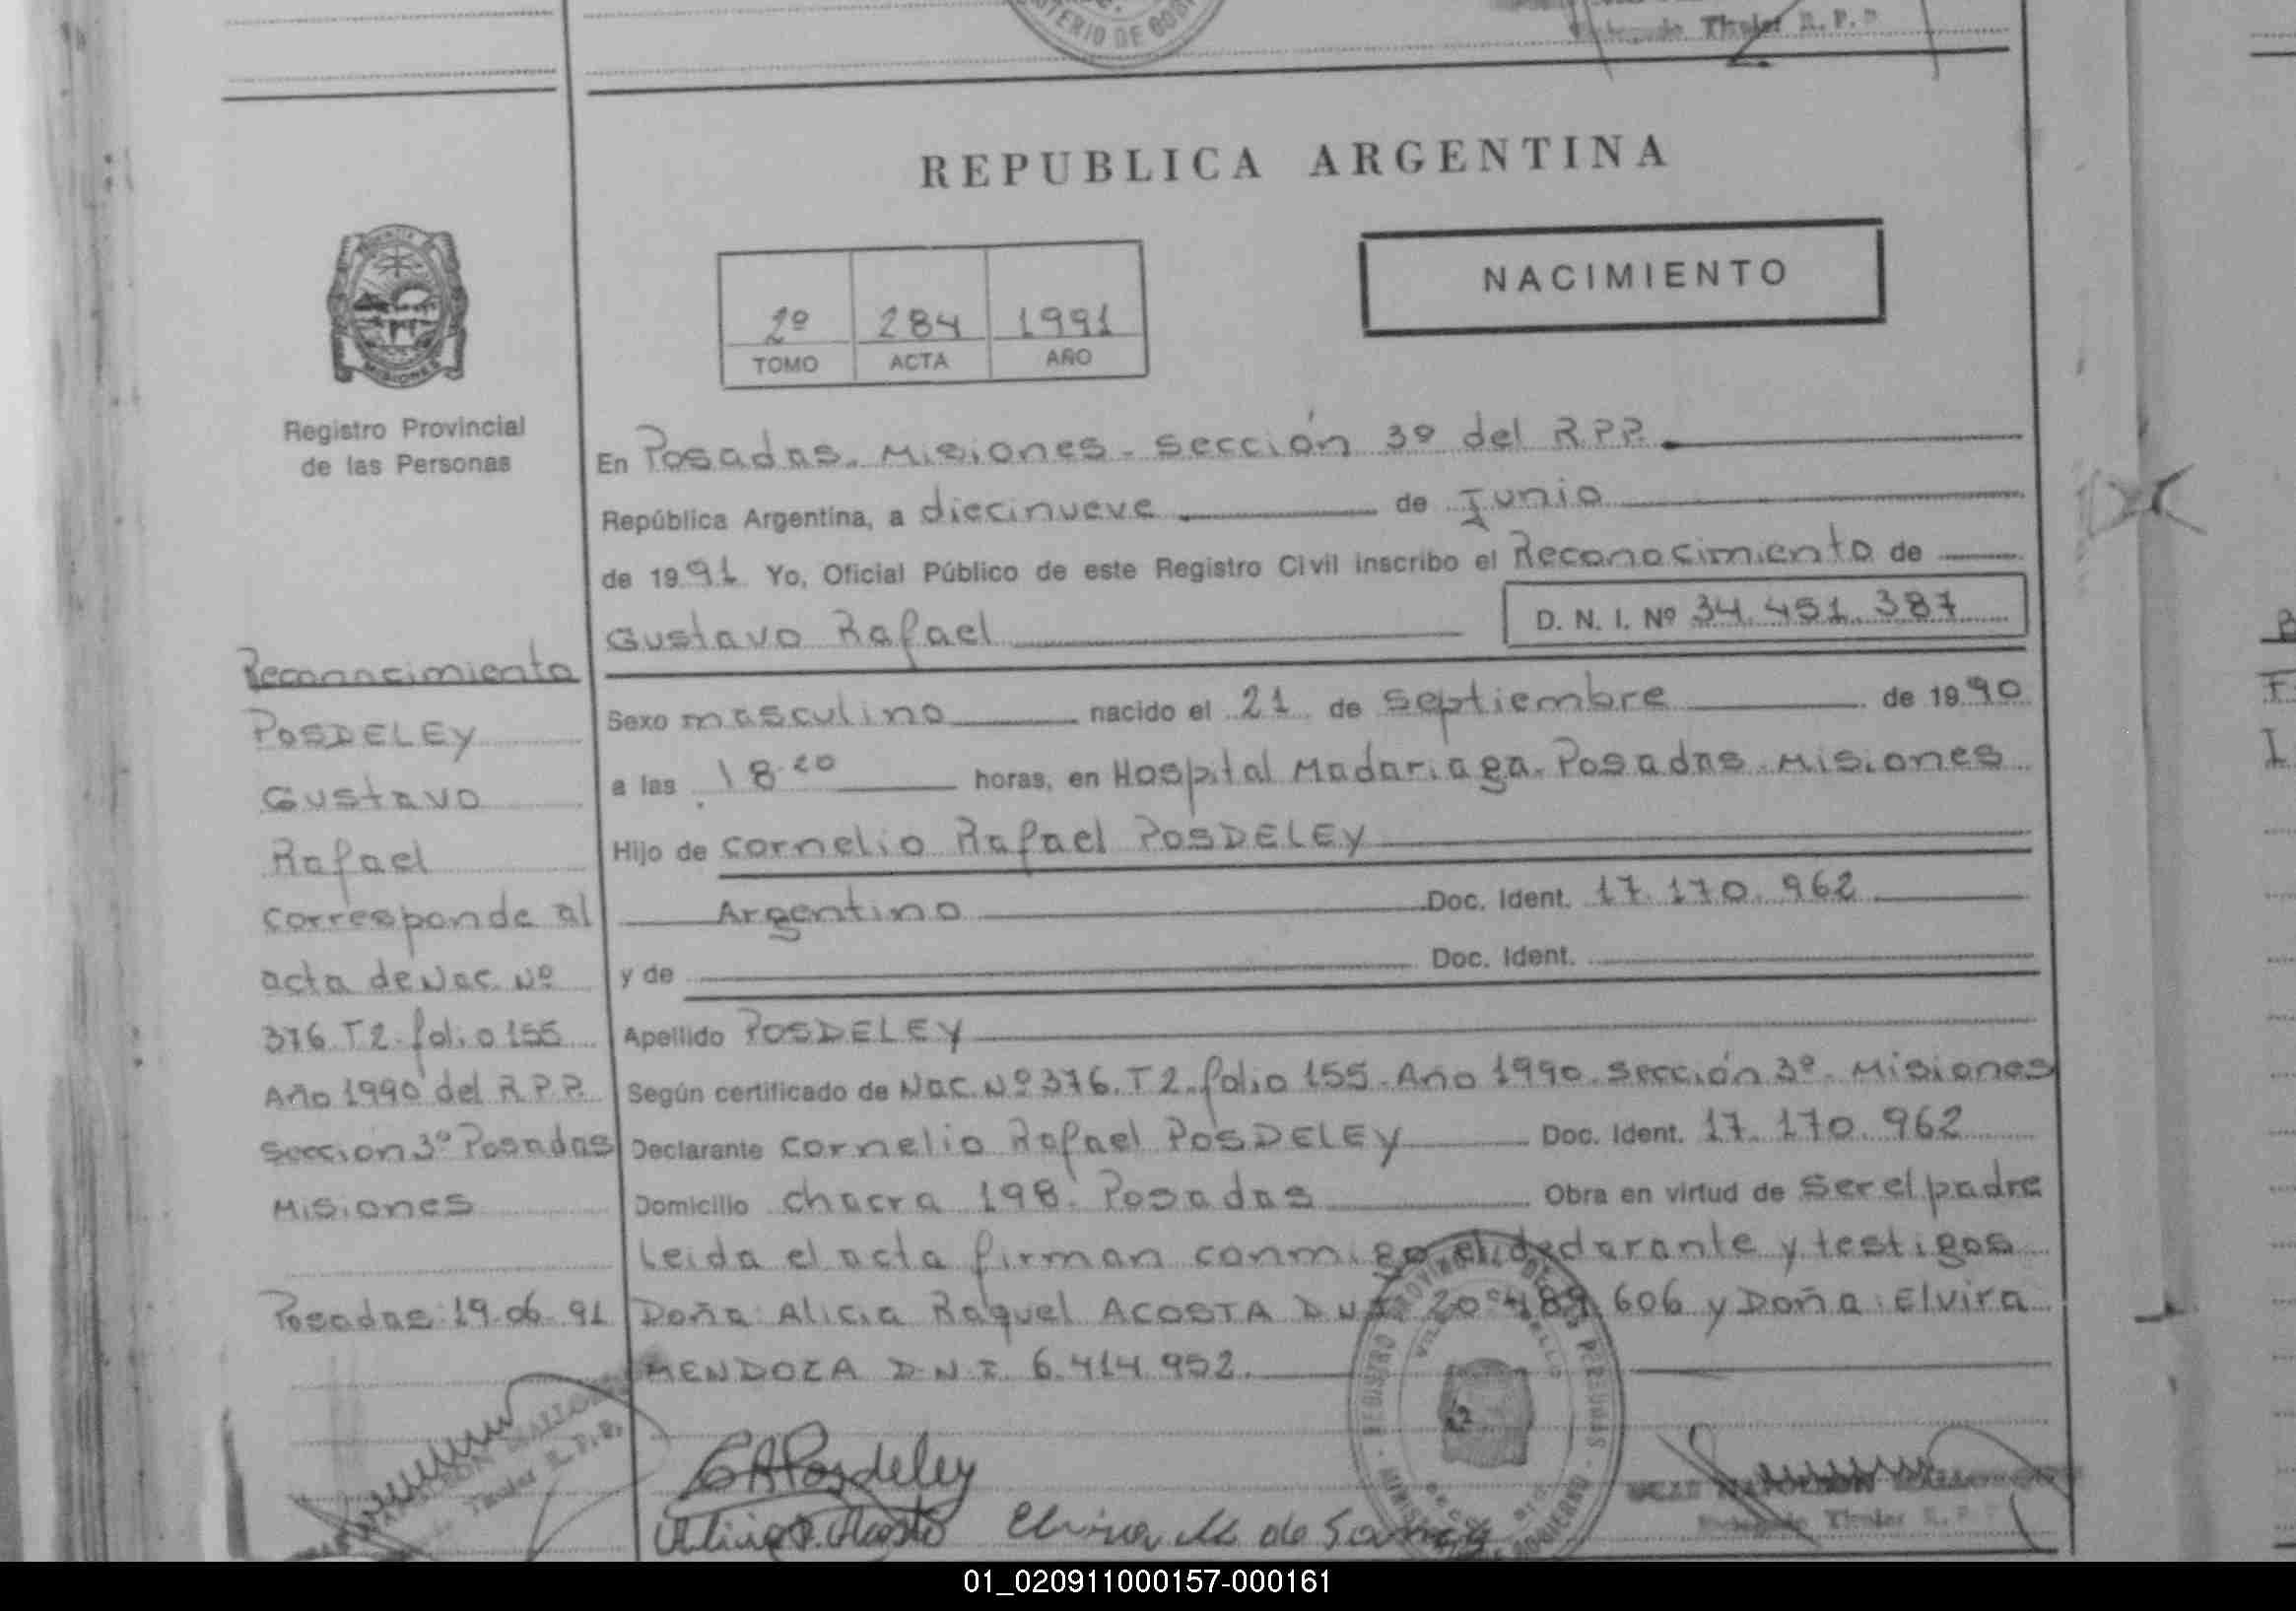 MINISTERIO DE GOBI
Titular R. P. P.
REPUBLICA ARGENTINA
NACIMIENTO
2º 284 1991
TOMO ACTA AÑO
MISIONES
Registro Provincial
de las Personas
En Posadas. Misiones. Sección 3º del R.P.P.
República Argentina, a diecinueve de Junio
de 1991 Yo, Oficial Público de este Registro Civil inscribo el Reconocimiento de
Gustavo Rafael D. N. I. Nº 34.451.387
Sexo masculino nacido el 21 de septiembre de 1990
a las 18.20 horas, en Hospital Madariaga. Posadas. Misiones
Hijo de Cornelio Rafael POSDELEY
Argentino Doc. Ident. 17.170.962
y de Doc. Ident.
Apellido POSDELEY
Según certificado de Nac. Nº 376. T2. folio 155. Año 1990. Sección 3º. Misiones
Declarante Cornelio Rafael POSDELEY Doc. Ident. 17.170.962
Domicilio chacra 198. Posadas Obra en virtud de ser el padre
Leida el acta firman conmigo el declarante y testigos
Doña: Alicia Raquel ACOSTA D.N.I. 20.489.606 y Doña: Elvira
MENDOZA D.N.I. 6.414.952.
Reconocimiento
POSDELEY
Gustavo
Rafael
corresponde al
acta de Nac. Nº
376 T2. folio 155
Año 1990 del R.P.P.
Sección 3º Posadas
Misiones
Posadas: 19.06.91
Titular R.P.P.
C R Posdeley
Alicia R. Acosta Elvira M de
REGISTRO PROVINCIAL DE LAS PERSONAS
MINISTERIO DE GOBIERNO
Titular R. P.
01_020911000157-000161